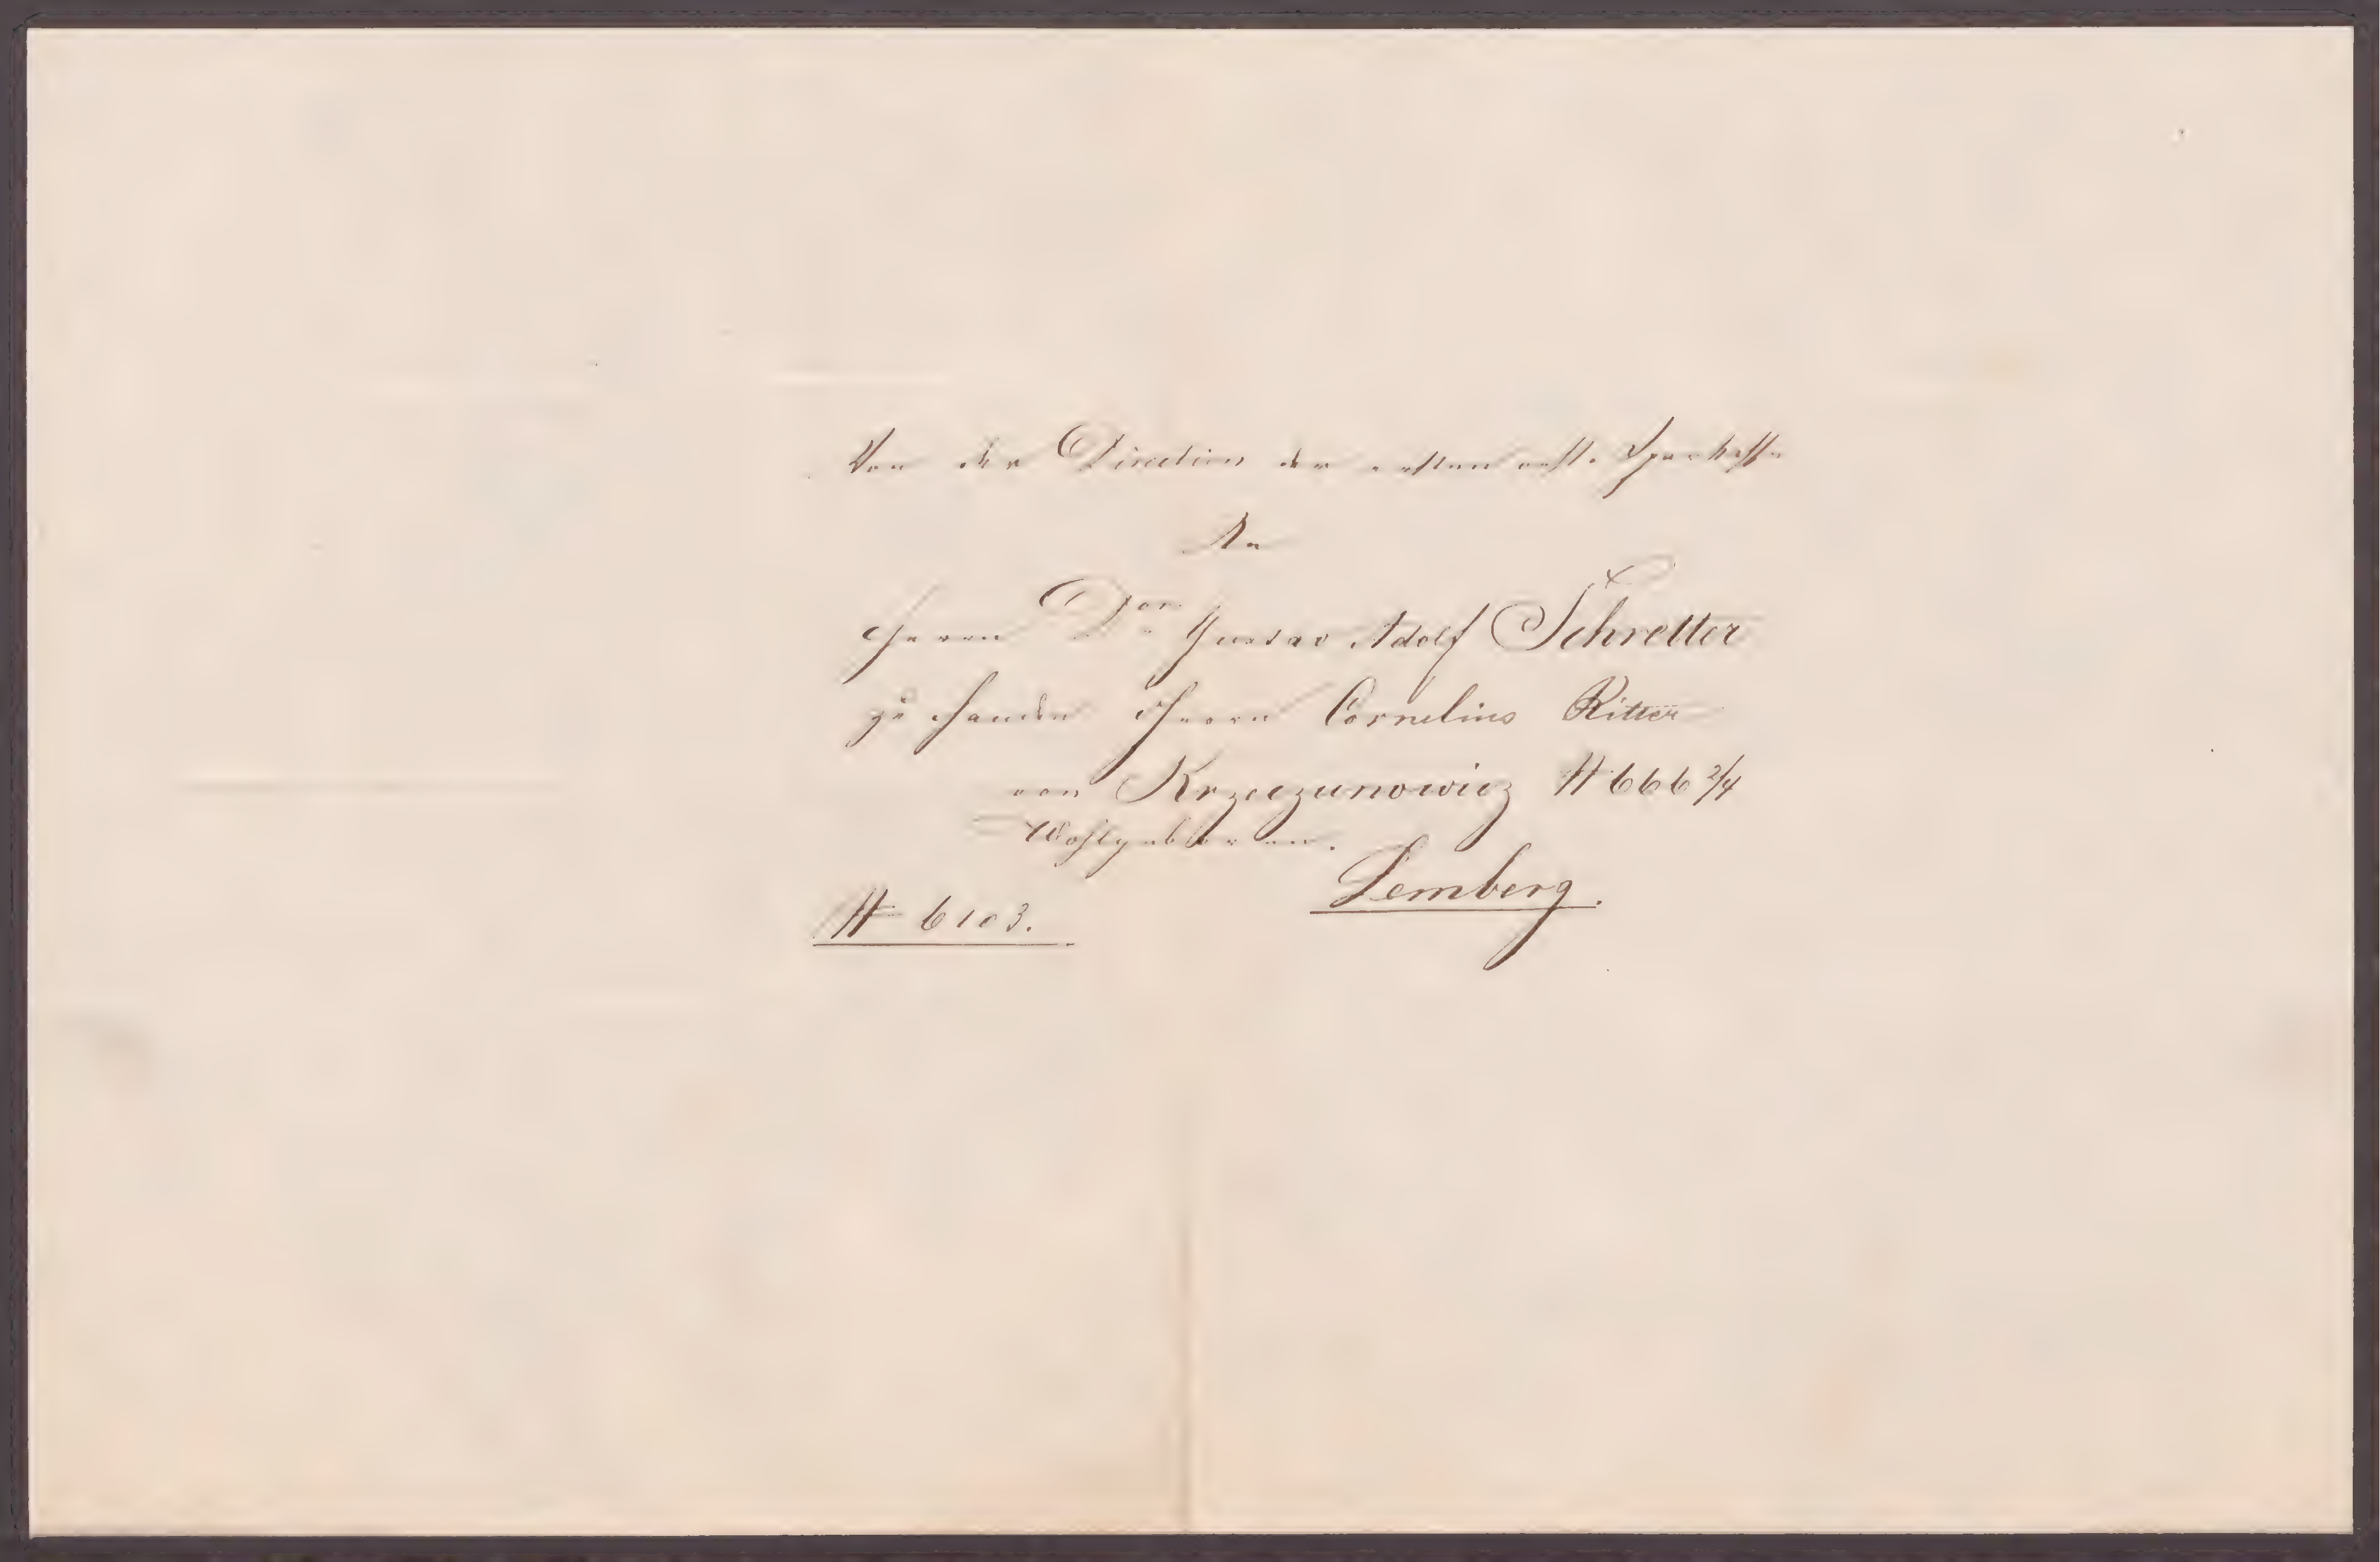 Von der Direction der ersten östr. Sparkasse
An
Herrn Dor Gustav Adolf Schretter
zu Handen Herrn Cornelius Ritter
von Krzeczunowicz N 666 2/4
Wohlgeboren.
Lemberg.
N 6103.